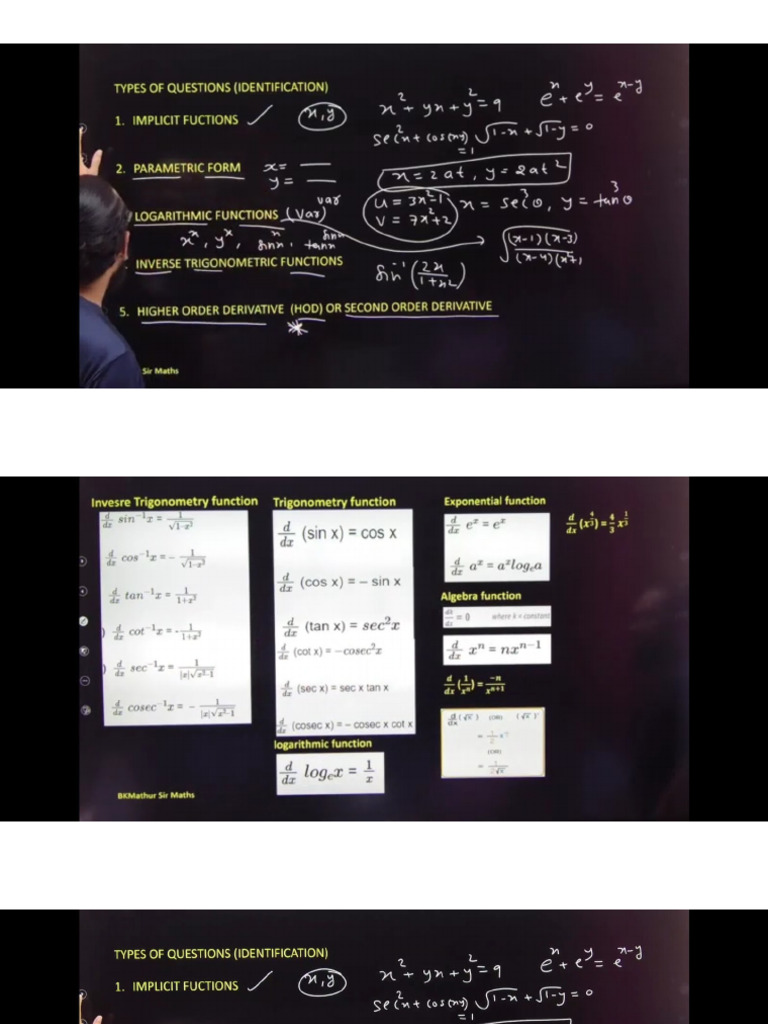 TYPES OF QUESTIONS (IDENTIFICATION)
x² + yx + y² = 9
eˣ + eʸ = eˣ⁻ʸ
1. IMPLICIT FUCTIONS ✓
x,y
sec²x + cos(xy) = 1
√1-x + √1-y = 0
2. PARAMETRIC FORM x = __
y = __
x = 2at, y = 2at²
LOGARITHMIC FUNCTIONS (Var)ᵛᵃʳ
u = 3x²-1
v = 7x²+2
x = sec³θ, y = tan³θ
xˣ, yˣ, sinxˣ, tanx^sinx
√(x-1)(x-3)/(x-4)(x²+1
. INVERSE TRIGONOMETRIC FUNCTIONS
sin⁻¹(2x/1+x²)
5. HIGHER ORDER DERIVATIVE (HOD) OR SECOND ORDER DERIVATIVE
*
Sir Maths
Invesre Trigonometry function
d/dx sin⁻¹x = 1/√1-x²
d/dx cos⁻¹x = - 1/√1-x²
d/dx tan⁻¹x = 1/1+x²
d/dx cot⁻¹x = - 1/1+x²
d/dx sec⁻¹x = 1/|x|√x²-1
d/dx cosec⁻¹x = - 1/|x|√x²-1
BKMathur Sir Maths
Trigonometry function
d/dx (sin x) = cos x
d/dx (cos x) = – sin x
d/dx (tan x) = sec²x
d/dx (cot x) = –cosec²x
d/dx (sec x) = sec x tan x
d/dx (cosec x) = – cosec x cot x
logarithmic function
d/dx logₑx = 1/x
Exponential function
d/dx eˣ = eˣ
d/dx aˣ = aˣlogₑa
d/dx (x^4/3) = 4/3 x^1/3
Algebra function
dk/dx = 0 where k = constant
d/dx xⁿ = nxⁿ⁻¹
d/dx (1/xⁿ) = -n/xⁿ⁺¹
d/dx (√x) (OR) (√x)'
(OR)
= 1/2√x
TYPES OF QUESTIONS (IDENTIFICATION)
x² + yx + y² = 9
eˣ + eʸ = eˣ⁻ʸ
1. IMPLICIT FUCTIONS ✓
x,y
sec²x + cos(xy) = 1
√1-x + √1-y = 0